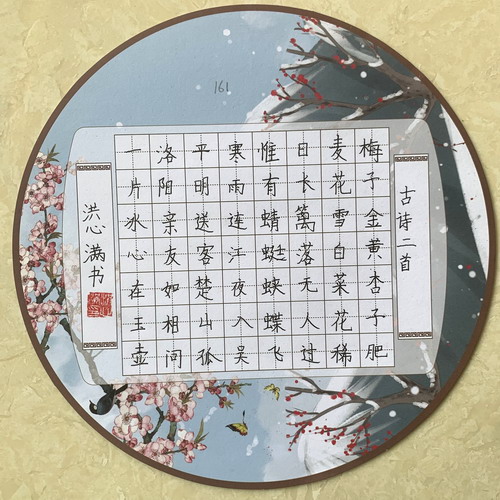 161
古诗二首
梅子金黄杏子肥
麦花雪白菜花稀
日长篱落无人过
惟有蜻蜓蛱蝶飞
寒雨连江夜入吴
平明送客楚山孤
洛阳亲友如相问
一片冰心在玉壶
洪心满书